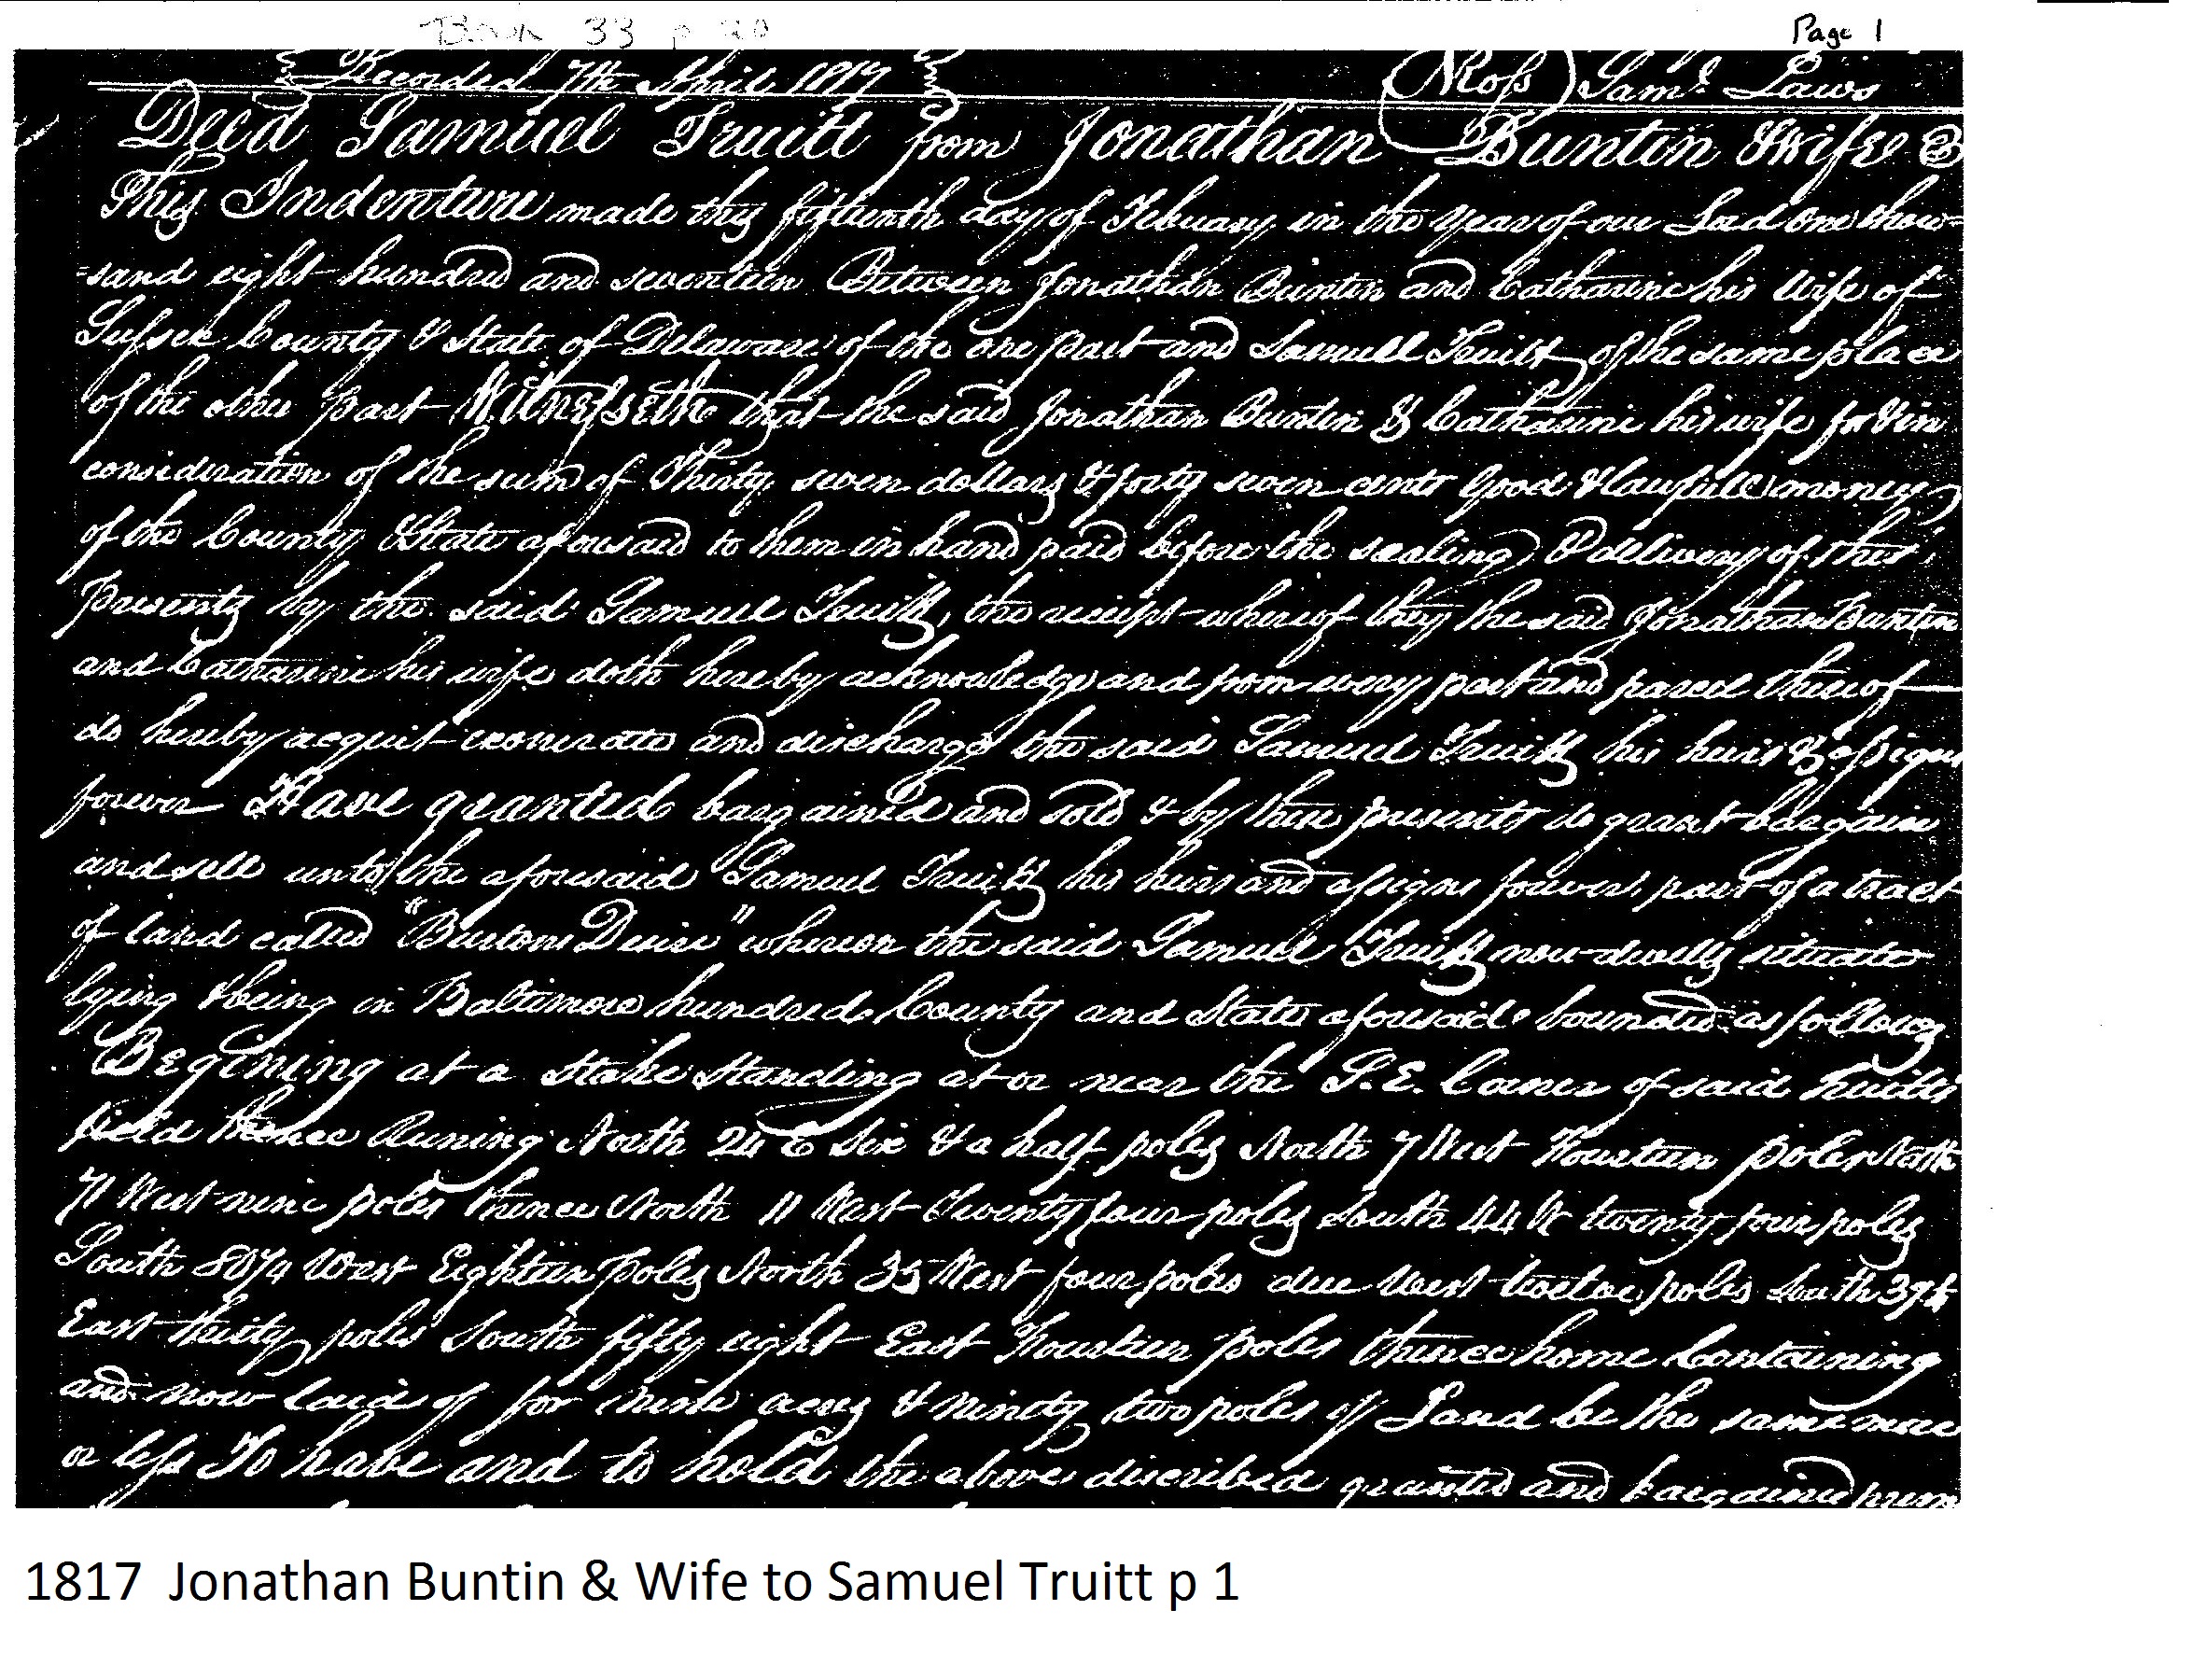 Book 33 p
Page 1
Recorded 7th April 1817
NRoss Saml. Laws
Deed Samuel Truitt from Jonathan Buntin & wife
This Indenture made this fifteenth day of Febuary in the Year of our Lord One thou-
=sand eight hundred and seventeen Between Jonathan Buntin and Catharine his Wife of
Sussex County & State of Delaware of the one part and Samuel Truitt of the same place
of the other part Witnesseth that the said Jonathan Buntin & Catharine his wife for & in
consideration of the sum of Thirty seven dollars & forty seven cents Good & lawfull money
of the County & State aforesaid to them in hand paid before the sealing & delivery of these
presents by the said Samuel Truitt, the receipt whereof they the said Jonathan Buntin
and Catharine his wife doth hereby acknowledge and from every part and parcel thereof
do hereby acquit exonerate and discharge the said Samuel Truitt his heirs & assigns
forever Have granted bargained and sold & by these presents do grant bargain
and sell unto the aforesaid Samuel Truitt his heirs and assigns forever, part of a tract
of land called "Burtons Desire" whereon the said Samuel Truitt now dwells situate
lying & being in Baltimore hundred County and State aforesaid bounded as follows
Begining at a Stake Standing at or near the S.E. Corner of said truitts
field thence Runing North 24 E Six & a half poles North 7 West Fourteen poles North
71 West nine poles thence North 11 West Twenty four poles South 44 W twenty four poles
South West Eighteen poles North 35 West four poles due West twelve poles South
East thirty poles South fifty eight East Fourteen poles thence home Containing
and now laid of for nine acres & ninety two poles of Land be the same more
or less To have and to hold the above discribed granted and bargained prem
1817 Jonathan Buntin & Wife to Samuel Truitt p 1